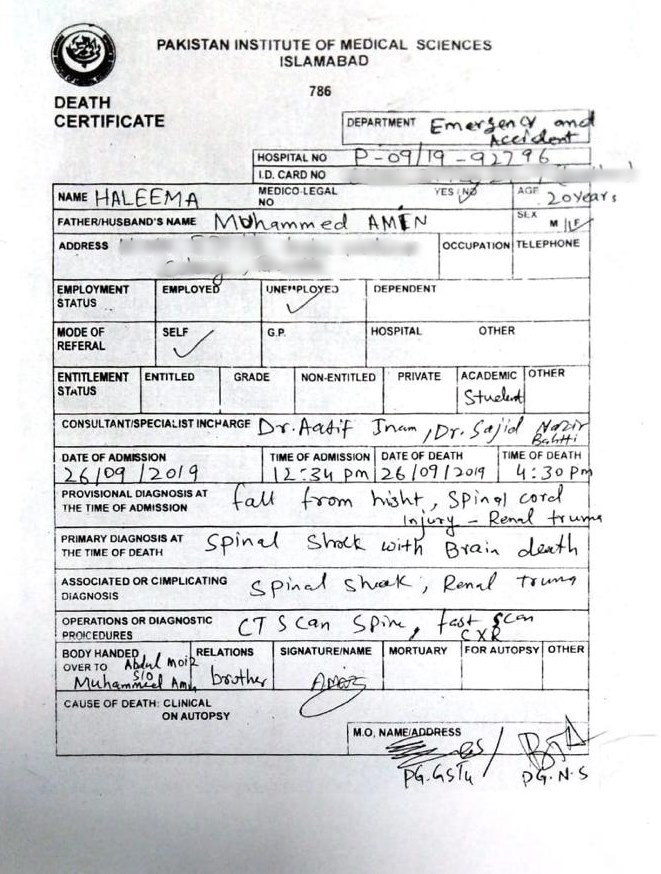 PAKISTAN INSTITUTE OF MEDICAL SCIENCES
ISLAMABAD
786
DEATH
CERTIFICATE
DEPARTMENT Emergency and
Accident
HOSPITAL NO P-09/19-92796
I.D. CARD NO
NAME HALEEMA MEDICO-LEGAL NO YES/NO AGE 20years
FATHER/HUSBAND'S NAME Muhammed AMEN SEX M/F
ADDRESS OCCUPATION TELEPHONE
EMPLOYMENT STATUS EMPLOYED UNEMPLOYED DEPENDENT
MODE OF REFERAL SELF G.P. HOSPITAL OTHER
ENTITLEMENT STATUS ENTITLED GRADE NON-ENTITLED PRIVATE ACADEMIC OTHER
Student
CONSULTANT/SPECIALIST INCHARGE Dr. Aatif Inam, Dr. Sajid Nazir
Bahtti
DATE OF ADMISSION TIME OF ADMISSION DATE OF DEATH TIME OF DEATH
26/09/2019 12:34 pm 26/09/2019 4:30pm
PROVISIONAL DIAGNOSIS AT THE TIME OF ADMISSION fall from hight, Spinal cord
Injury - Renal truma
PRIMARY DIAGNOSIS AT THE TIME OF DEATH Spinal Shock with Brain death
ASSOCIATED OR CIMPLICATING DIAGNOSIS Spinal Shock, Renal truma
OPERATIONS OR DIAGNOSTIC PROICEDURES CT Scan Spine, fast scan
CXR
BODY HANDED OVER TO Abdul Moiz RELATIONS SIGNATURE/NAME MORTUARY FOR AUTOPSY OTHER
S/O
Muhammeed Amen brother
CAUSE OF DEATH: CLINICAL
ON AUTOPSY
M.O, NAME/ADDRESS
PG.GSTU PG.N.S